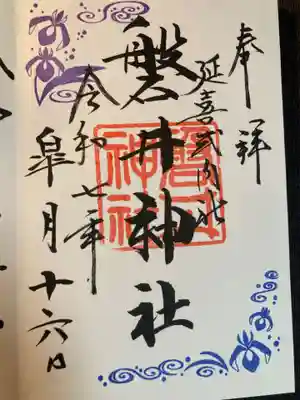 奉拝
延喜式内社
磐井神社
磐井神社
令和七年
皐月十六日